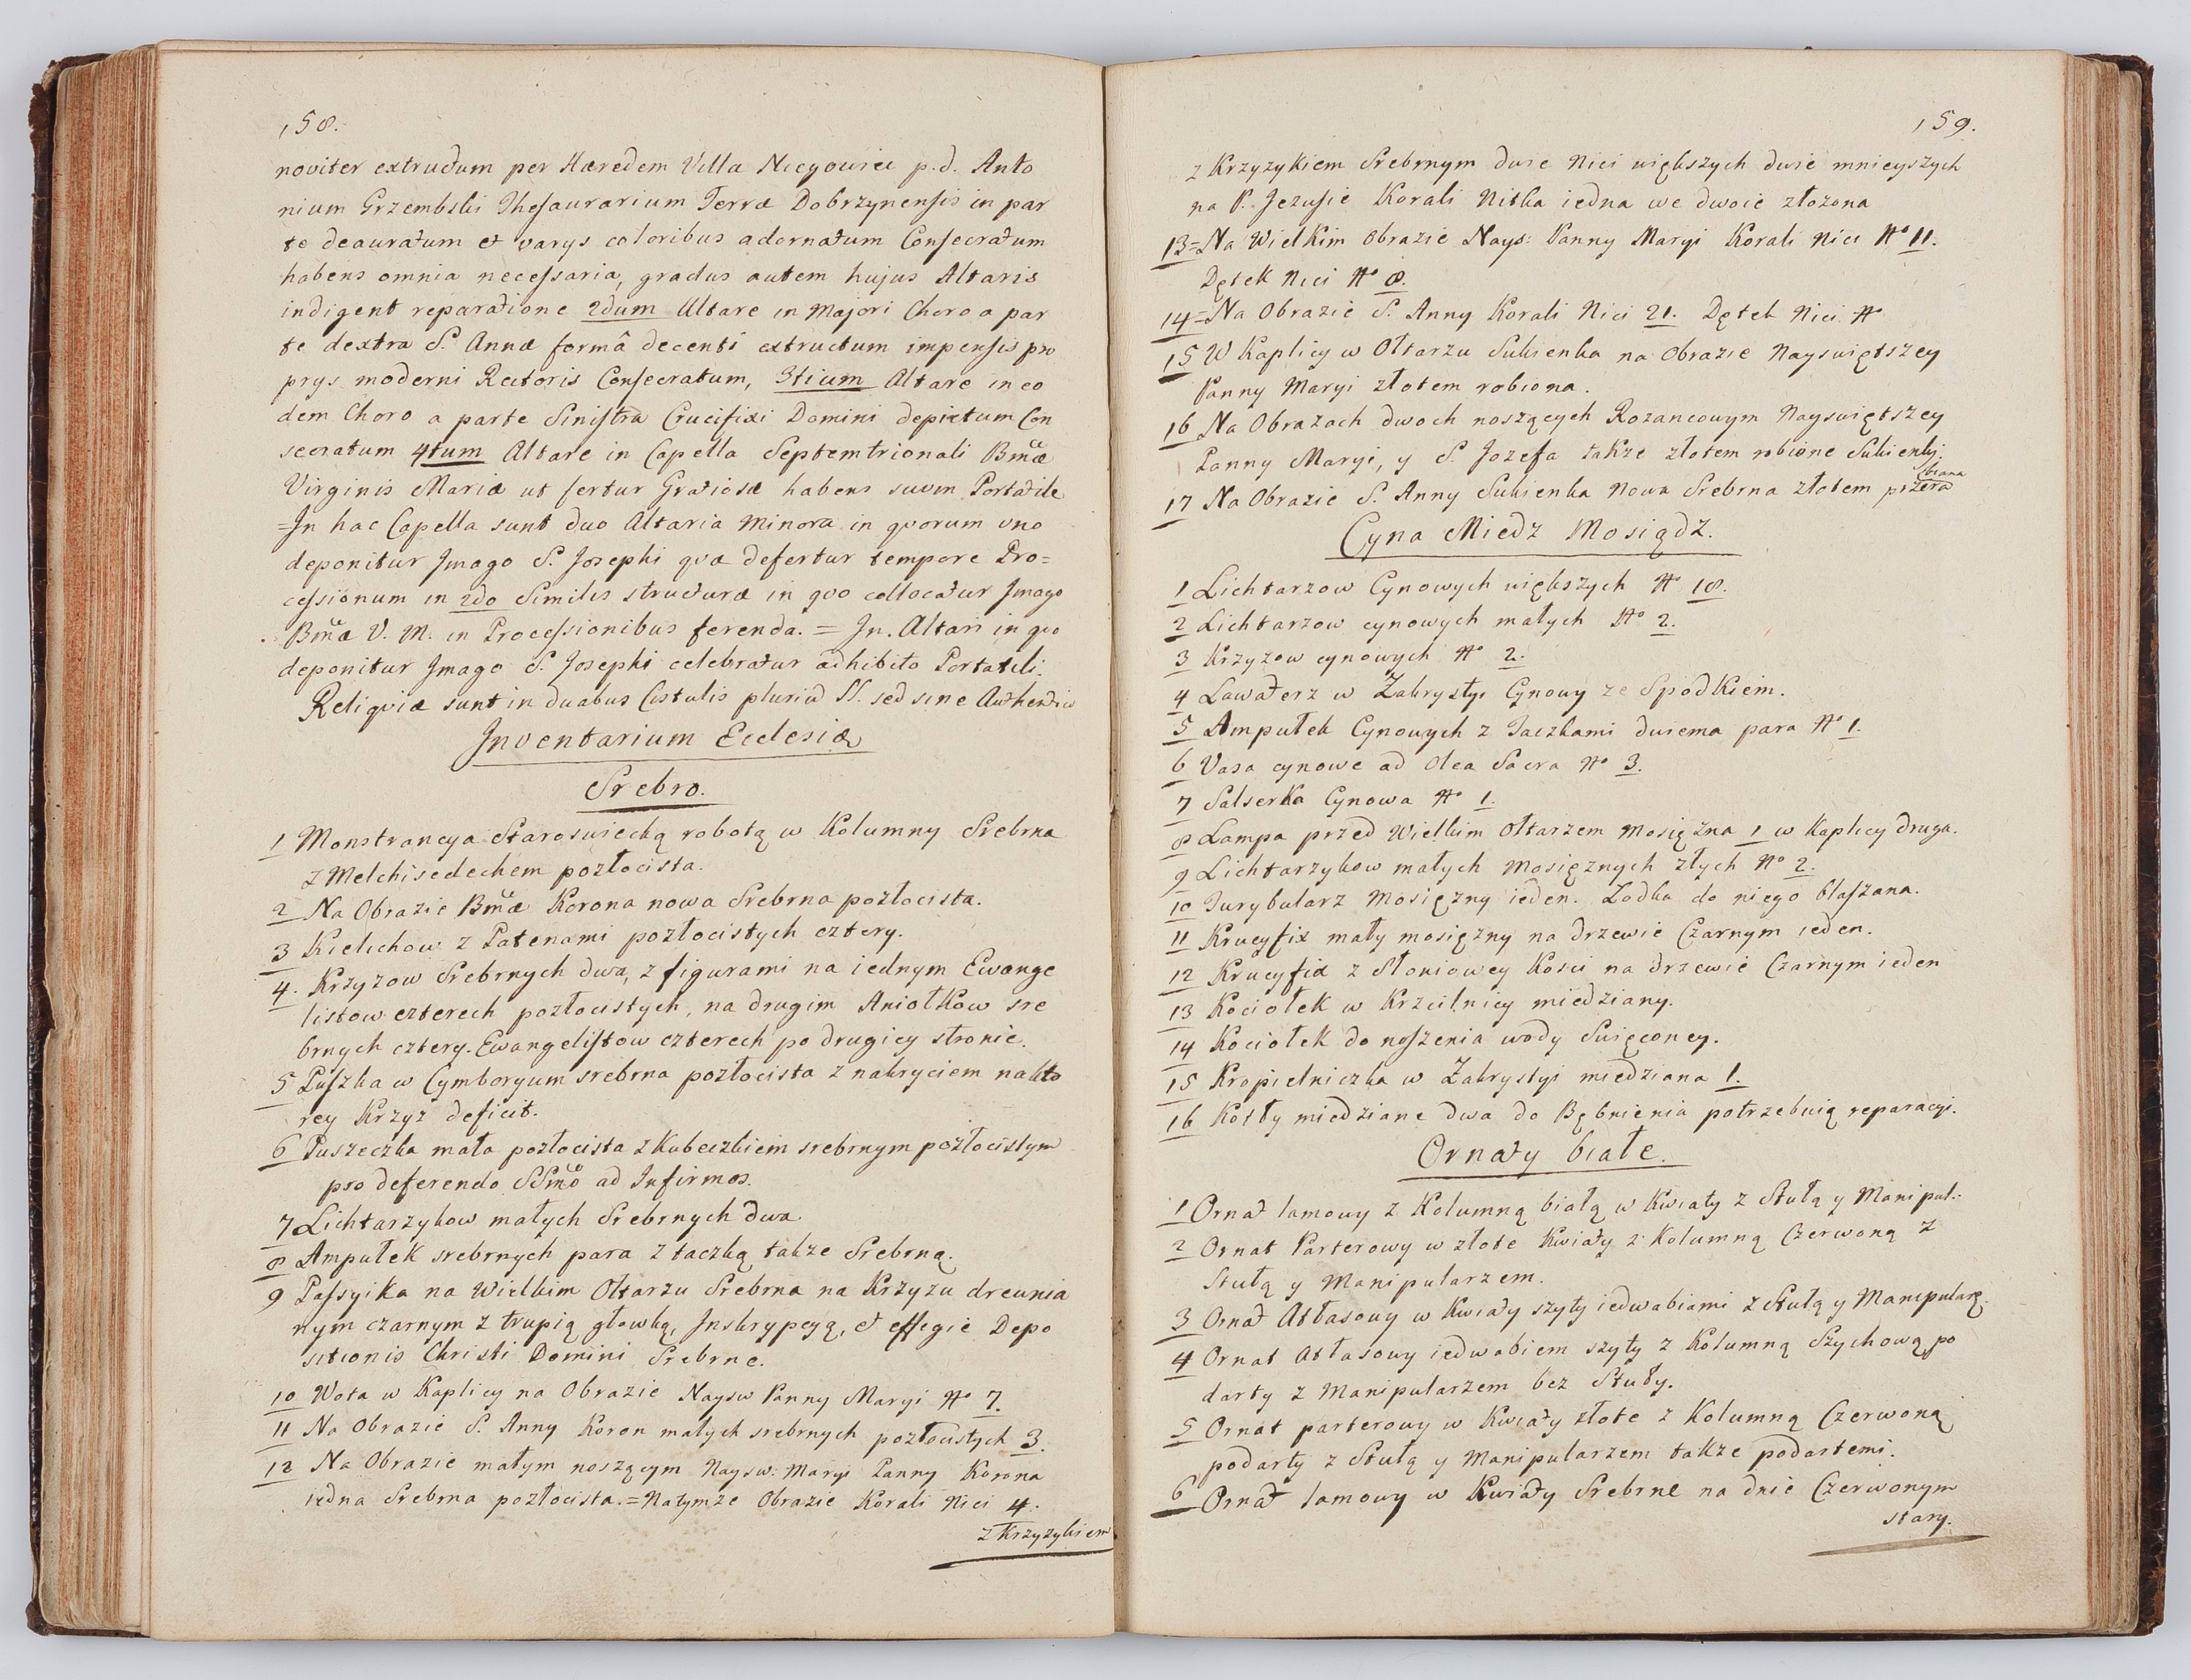 158.
noviter extructum per Hæredem Villa Niegowiec p. d. Anto
nium Grzembski Thesaurarium Terræ Dobrzynensis in par
te deauratum et varys coloribus adornatum Consecratum
habens omnia necessaria, gradus autem hujus Altaris
indigent reparatione 2dum Altare in Majori Choro a par
te dextra S. Annæ formâ decenti extructum impensis pro
prys moderni Rectoris Consecratum, 3tium Altare in eo
dem Choro a parte Sinistra Crucifixi Domini depictum Con
secratum 4tum Altare in Capella Septemtrionali Bmæ
Virginis Mariæ ut fertur Gratiosæ habens suum Portatile
=In hac Capella sunt duo Altaria Minora in quorum uno
deponitur Imago S. Josephi quæ defertur tempore Pro=
cessionum in 2do Similis structuræ in quo collocatur Imago
Bmæ V. M. in Processionibus ferenda. = In Altari in quo
deponitur Imago S. Josephi celebratur adhibito Portatili.
Reliquiæ sunt in duabus Cistulis pluriū SS. sed sine Authenticis
Inventarium Ecclesiæ
Srebro.
1 Monstrancya Staroswiecką robotą w Kolumny Srebrna
z Melchisedechem pozłocista.
2 Na Obrazie Bmæ Korona nowa Srebrna pozłocista.
3 Kielichow z Patenami pozłocistych cztery.
4. Krzyzow Srebrnych dwa, z figurami na iednym Ewange
listow czterech pozłocistych, na drugim Aniołkow sre
brnych cztery. Ewangelistow czterech po drugiey stronie.
5 Puszka w Cymboryum srebrna pozłocista z nakryciem na kto
rey Krzyz deficit.
6 Puszeczka mała pozłocista z Kubeczkiem srebrnym pozłocistym
pro deferendo SSmo ad Infirmos.
7 Lichtarzykow małych Srebrnych dwa
8 Ampułek srebrnych para z taczką takze Srebrną.
9 Passyika na Wielkim Ołtarzu Srebrna na Krzyzu drewnia
nym czarnym z trupią głowką, Inskrypcyą, et effigie Depo
sitionis Christi Domini Srebrne.
10 Wota w Kaplicy na Obrazie Naysw Panny Maryi No 7.
11 Na Obrazie S. Anny Koron małych srebrnych pozłocistych 3.
12 Na Obrazie małym noszącym Naysw: Maryi Panny Korona
iedna Srebrna pozłocista. = Na tymze Obrazie Korali Nici 4.
z Krzyzykiem
159.
z Krzyzykiem Srebrnym dwie Nici większych dwie mnieyszych
na P. Jezusie Korali Nitka iedna we dwoie złozona
13=Na Wielkim Obrazie Nays: Panny Maryi Korali Nici No 11.
Dętek Nici No 8.
14=Na Obrazie S. Anny Korali Nici 21. Dętek Nici No
15 W Kaplicy w Ołtarzu Sukienka na Obrazie Nayswiętszey
Panny Maryi złotem robiona.
16 Na Obrazach dwoch noszących Rozancowym Nayswiętszey
Panny Maryi, y S. Jozefa takze złotem robione Sukienki:
17 Na Obrazie S. Anny Sukienka Nowa Srebrna złotem przera
biana
Cyna Miedz Mosiądz.
1 Lichtarzow Cynowych większych No 18.
2 Lichtarzow cynowych małych No 2.
3 Krzyzow cynowych No 2.
4 Lawaterz w Zakrystyi Cynowy ze Spodkiem.
5 Ampułek Cynowych z Taczkami dwiema para No 1.
6 Vasa cynowe ad Olea Sacra No 3.
7 Salserka Cynowa No 1.
8 Lampa przed Wielkim Ołtarzem Mosięzna 1 w Kaplicy druga.
9 Lichtarzykow małych Mosięznych złych No 2.
10 Turybularz Mosięzny ieden. Lodka do niego blaszana.
11 Krucyfix mały mosięzny na drzewie Czarnym ieden.
12 Krucyfix z Słoniowey Kosci na drzewie Czarnym ieden
13 Kociołek w Krzcilnicy miedziany.
14 Kociołek do noszenia wody Swięconey.
15 Kropielniczka w Zakrystyi miedziana 1.
16 Kotły miedziane dwa do Bębnienia potrzebuią reparacyi.
Ornaty białe.
1 Ornat lamowy z Kolumną białą w Kwiaty z Stułą y Manipul.:
2 Ornat Parterowy w złote Kwiaty z Kolumną Czerwoną z
Stułą y Manipularzem.
3 Ornat Atłasowy w Kwiaty szyty iedwabiami z Stułą y Manipularz.
4 Ornat Atłasowy iedwabiem szyty z Kolumną Szychową po
darty z Manipularzem bez Stuły.
5 Ornat parterowy w Kwiaty złote z Kolumną Czerwoną
podarty z Stułą y Manipularzem takze podartemi.
6 Ornat lamowy w Kwiaty Srebrne na dnie Czerwonym
stary.